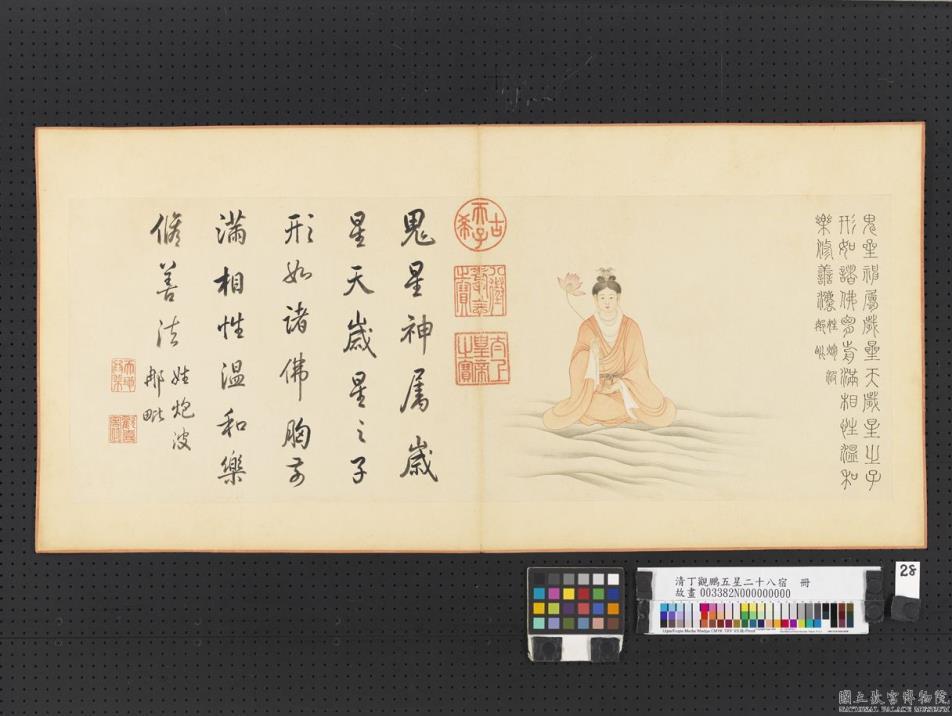 鬼星神屬歲星天歲星之子
形如諸佛胸有滿相性溫和
樂脩善法 姓炮波
那毗
古希天子
八徵耄念之寶
太上皇帝之寶
鬼星神屬歲
星天歲星之子
形如諸佛胸有
滿相性溫和樂
脩善法 姓炮波
那毗
28
清丁觀鵬五星二十八宿 冊
故畫 003382N000000000
國立故宮博物院
NATIONAL PALACE MUSEUM